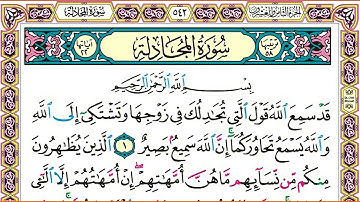 سُورَةُ المُجَادلَة ٥٤٢ الجزء الثامن والعشرون
آياتها ٢٢ سُورَةُ المُجَادلَة ترتيبها ٥٨
بِسْمِ اللَّهِ الرَّحْمَٰنِ الرَّحِيمِ
قَدْ سَمِعَ اللَّهُ قَوْلَ الَّتِي تُجَٰدِلُكَ فِي زَوْجِهَا وَتَشْتَكِي إِلَى اللَّهِ
وَاللَّهُ يَسْمَعُ تَحَاوُرَكُمَا إِنَّ اللَّهَ سَمِيعٌ بَصِيرٌ ١ الَّذِينَ يُظَٰهِرُونَ
مِنكُم مِّن نِّسَائِهِم مَّا هُنَّ أُمَّهَٰتِهِمْ إِنْ أُمَّهَٰتُهُمْ إِلَّا الَّٰٓـِٔي